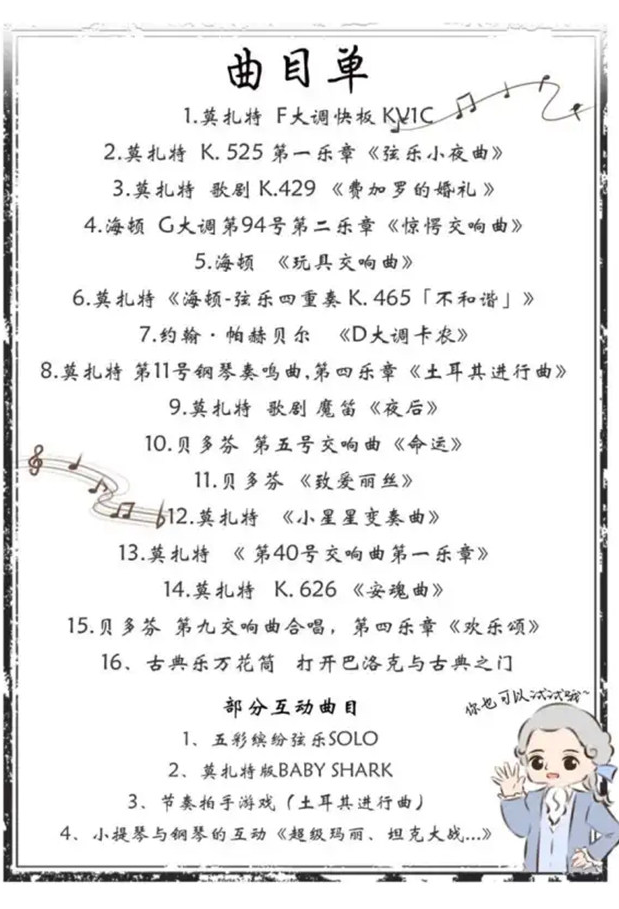 曲目单
1.莫扎特 F大调快板 KV1C
2.莫扎特 K. 525 第一乐章《弦乐小夜曲》
3.莫扎特 歌剧 K.429 《费加罗的婚礼 》
4.海顿 G大调第94号第二乐章《惊愕交响曲》
5.海顿 《玩具交响曲》
6.莫扎特《海顿-弦乐四重奏 K. 465「不和谐」》
7.约翰·帕赫贝尔 《D大调卡农》
8.莫扎特 第11号钢琴奏鸣曲,第四乐章《土耳其进行曲》
9.莫扎特 歌剧 魔笛《夜后》
10.贝多芬 第五号交响曲《命运》
11.贝多芬 《致爱丽丝》
12.莫扎特 《小星星变奏曲》
13.莫扎特 《 第40号交响曲第一乐章》
14.莫扎特 K. 626 《安魂曲》
15.贝多芬 第九交响曲合唱，第四乐章《欢乐颂》
16、古典乐万花筒 打开巴洛克与古典之门
部分互动曲目
你也可以试试哦~
1、五彩缤纷弦乐SOLO
2、莫扎特版BABY SHARK
3、节奏拍手游戏（土耳其进行曲）
4、小提琴与钢琴的互动《超级玛丽、坦克大战...》